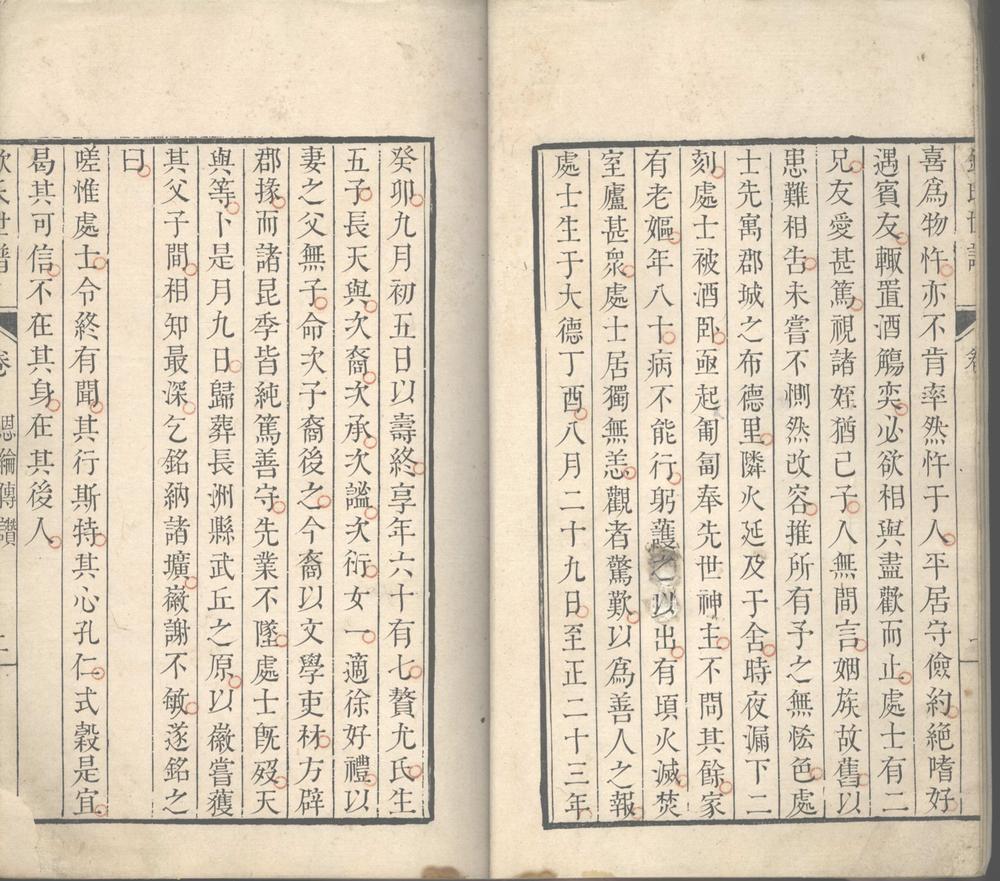 喜爲物忤亦不肯率然忤于人平居守儉約絶嗜好
遇賓友輙置酒觴奕必欲相與盡歡而止處士有二
兄友愛甚篤視諸姪猶己子人無間言姻族故舊以
患難相告未嘗不惻然改容推所有予之無恡色處
士先寓郡城之布德里隣火延及于舍時夜漏下二
刻處士被酒卧亟起匍匐奉先世神主不問其餘家
有老嫗年八十病不能行躬護之以出有頃火滅焚
室廬甚衆處士居獨無恙觀者驚歎以爲善人之報
處士生于大德丁酉八月二十九日至正二十三年
癸卯九月初五日以壽終享年六十有七贅尤氏生
五子長天與次裔次承次謐次衍女一適徐好禮以
妻之父無子命次子裔後之今裔以文學吏材方辟
郡掾而諸昆季皆純篤善守先業不墜處士旣歿天
與等卜是月九日歸葬長洲縣武丘之原以徽嘗獲
其父子間相知最深乞銘納諸壙徽謝不敏遂銘之
曰
嗟惟處士令終有聞其行斯特其心孔仁式穀是宜
曷其可信不在其身在其後人
氏世譜
卷
恩綸傳讚